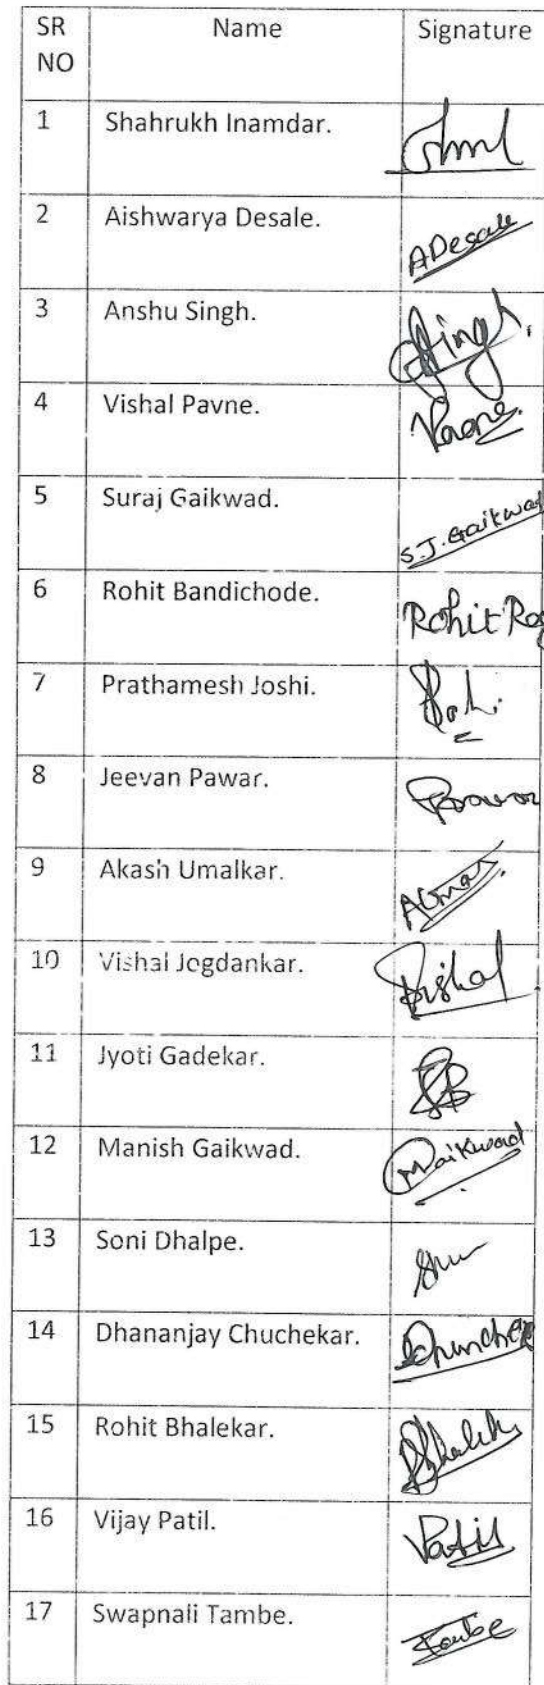 SR NO Name Signature
1 Shahrukh Inamdar.
2 Aishwarya Desale. ADesale
3 Anshu Singh. Singh.
4 Vishal Pavne. Pavne
5 Suraj Gaikwad. S.J. Gaikwad
6 Rohit Bandichode. Rohit
7 Prathamesh Joshi.
8 Jeevan Pawar. Pawar
9 Akash Umalkar.
10 Vishal Jogdankar. Vishal
11 Jyoti Gadekar.
12 Manish Gaikwad. MGaikwad
13 Soni Dhalpe.
14 Dhananjay Chuchekar.
15 Rohit Bhalekar.
16 Vijay Patil. Patil
17 Swapnali Tambe. Tambe